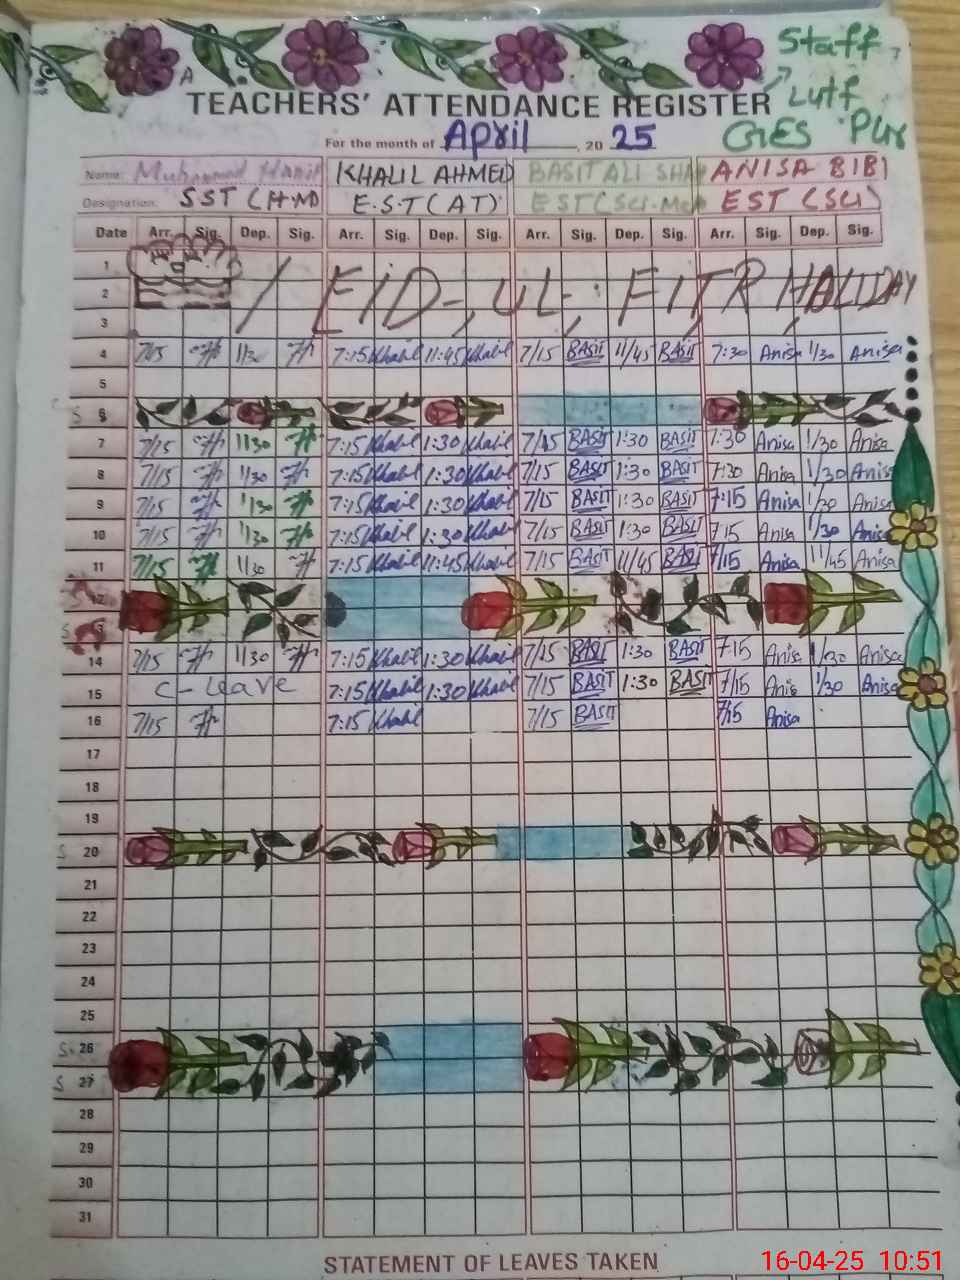 Staff
A
TEACHERS' ATTENDANCE REGISTER
Lutf
For the month of April, 20 25
GGES
Name: Muhammad Hanif KHALIL AHMED BASIT ALI SHAH ANISA BIBI
Designation: SST (H·M) E.S.T (AT) EST (SCI. EST (SCI)
Date Arr. Sig. Dep. Sig. Arr. Sig. Dep. Sig. Arr. Sig. Dep. Sig. Arr. Sig. Dep. Sig.
1
2 / EID-UL-FITR HALIDAY
3
4 7/15 1/30 7:15 Khalil 11:45 Khalil 7/15 BASIT 11/45 BASIT 7:30 Anisa 1/30 Anisa
5
S 6
7 7/15 1/30 7:15 Khalil 1:30 Khalil 7/15 BASIT 1:30 BASIT 7:30 Anisa 1/30 Anisa
8 7/15 1/30 7:15 Khalil 1:30 Khalil 7/15 BASIT 1:30 BASIT 7:30 Anisa 1/30 Anisa
9 7/15 1/30 7:15 Khalil 1:30 Khalil 7/15 BASIT 1:30 BASIT 7:15 Anisa 1/30 Anisa
10 7/15 1/30 7:15 Khalil 1:30 Khalil 7/15 BASIT 1:30 BASIT 7:15 Anisa 1/30 Anisa
11 7/15 1/30 7:15 Khalil 11:45 Khalil 7/15 BASIT 11/45 BASIT 7/15 Anisa 11/45 Anisa
S 12
S 13
14 7/15 1/30 7:15 Khalil 1:30 Khalil 7/15 BASIT 1:30 BASIT 7:15 Anisa 1/30 Anisa
15 C-Leave 7:15 Khalil 1:30 Khalil 7/15 BASIT 1:30 BASIT 7/15 Anisa 1/30 Anisa
16 7/15 7:15 Khalil 7/15 BASIT 7/15 Anisa
17
18
19
S 20
21
22
23
24
25
S 26
S 27
28
29
30
31
STATEMENT OF LEAVES TAKEN
16-04-25 10:51